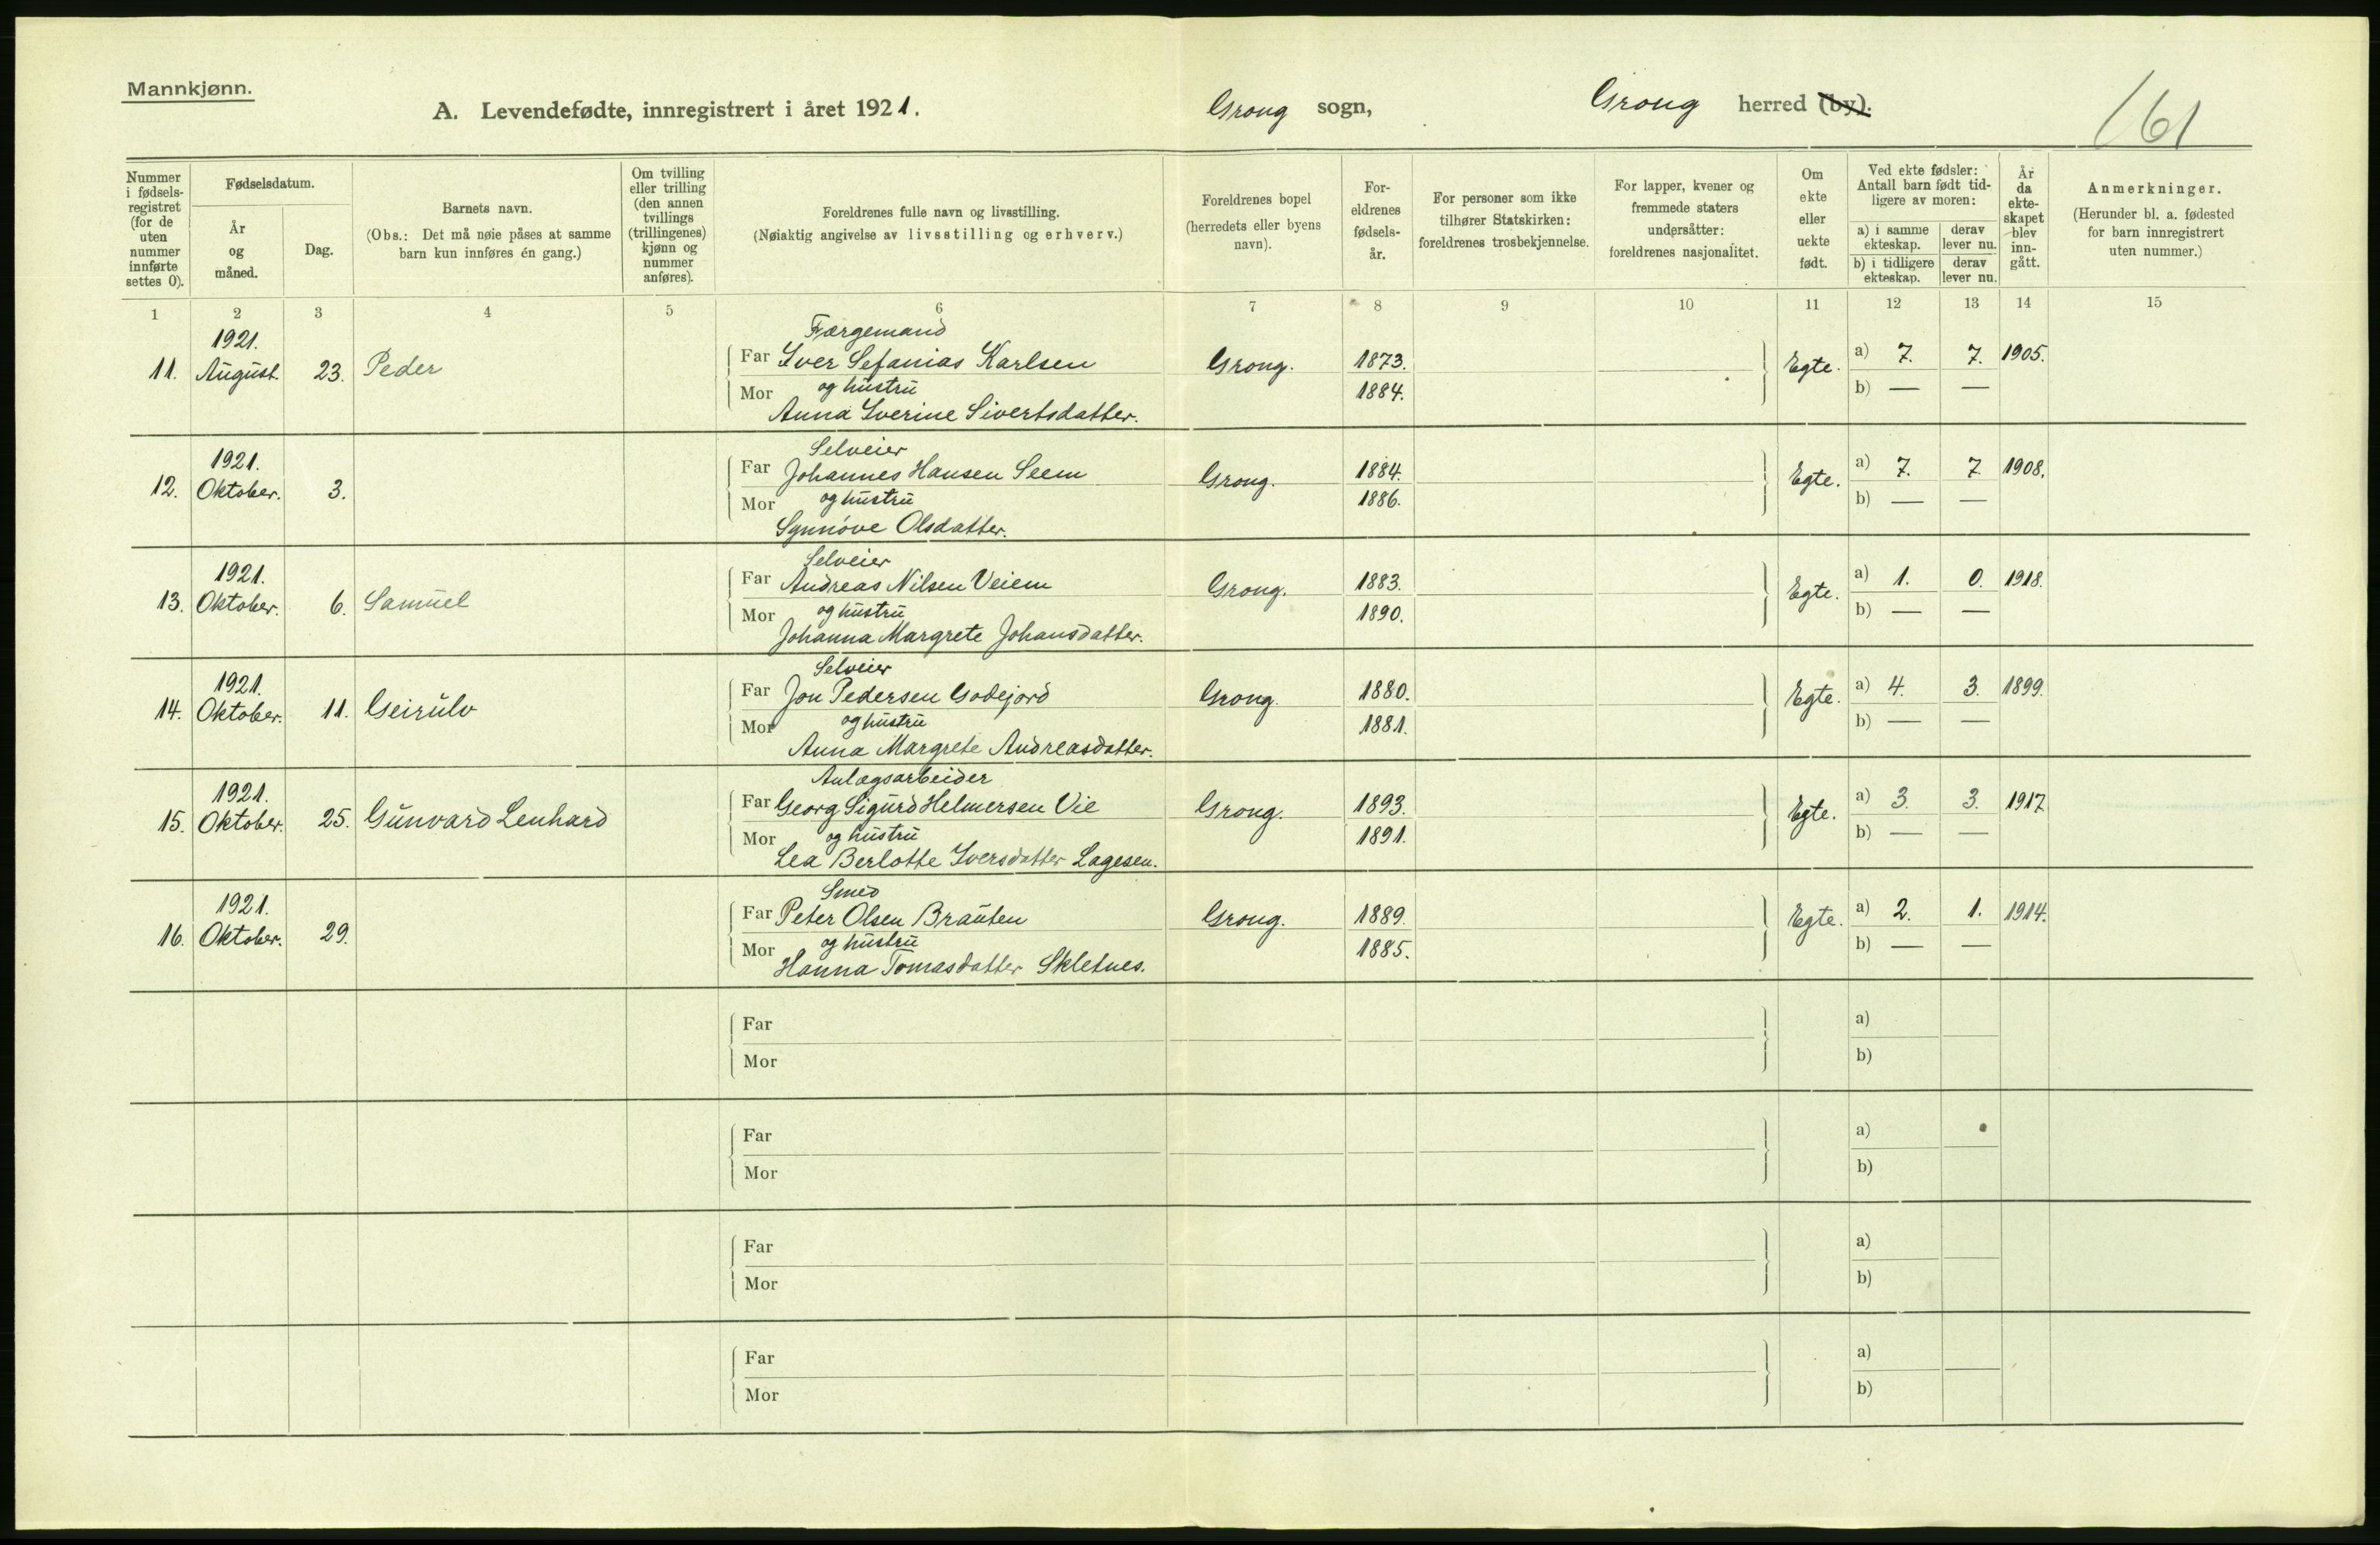 Mannkjønn.
A. Levendefødte, innregistrert i året 1921.
Grong sogn,
Grong herred (by).
161
Nummer i fødsels-registret (for de uten nummer innførte settes 0).
Fødselsdatum.
År og måned.
Dag.
Barnets navn.
(Obs.: Det må nøie påses at samme barn kun innføres én gang.)
Om tvilling eller trilling (den annen tvillings (trillingenes) kjønn og nummer anføres).
Foreldrenes fulle navn og livsstilling.
(Nøiaktig angivelse av livsstilling og erhverv.)
Foreldrenes bopel (herredets eller byens navn).
For-eldrenes fødsels-år.
For personer som ikke tilhører Statskirken: foreldrenes trosbekjennelse.
For lapper, kvener og fremmede staters undersåtter: foreldrenes nasjonalitet.
Om ekte eller uekte født.
Ved ekte fødsler: Antall barn født tid-ligere av moren:
a) i samme ekteskap.
derav lever nu.
b) i tidligere ekteskap.
derav lever nu.
År da ekte-skapet blev inn-gått.
Anmerkninger.
(Herunder bl. a. fødested for barn innregistrert uten nummer.)
1 2 3 4 5 6 7 8 9 10 11 12 13 14 15
1921. Færgemand
11. August. 23. Peder Far Iver Sefanias Karlsen Grong. 1873. Egte. a) 7. 7. 1905.
Mor og hustru 1884. b) — —
Anna Iverine Sivertsdatter.
1921. Selveier
12. Oktober. 3. Far Johannes Hansen Seem Grong. 1884. Egte. a) 7. 7 1908.
Mor og hustru 1886. b) — —
Synnöve Olsdatter.
1921. Selveier
13. Oktober. 6. Samuel Far Andreas Nilsen Veiem Grong. 1883. Egte. a) 1. 0. 1918.
Mor og hustru 1890. b) — —
Johanna Margrete Johansdatter.
1921. Selveier
14. Oktober. 11. Geirulv Far Jon Pedersen Godejord Grong. 1880. Egte. a) 4. 3. 1899.
Mor og hustru 1881. b) — —
Anna Margrete Andreasdatter.
1921. Anlægsarbeider
15. Oktober. 25. Gunvard Lenhard Far Georg Sigurd Helmersen Vie Grong. 1893. Egte. a) 3. 3. 1917
Mor og hustru 1891. b) — —
Lea Berlotte Iversdatter Lagesen.
1921. Smed
16. Oktober. 29. Far Peter Olsen Brauten Grong. 1889. Egte. a) 2. 1. 1914.
Mor og hustru 1885. b) — —
Hanna Tomasdatter Skletnes.
Far a)
Mor b)
Far a)
Mor b)
Far a)
Mor b)
Far a)
Mor b)